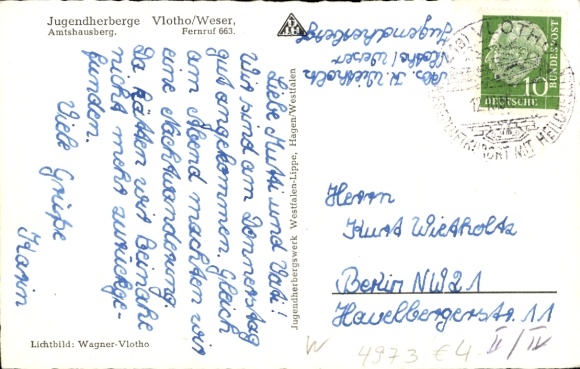 Jugendherberge Vlotho/Weser,
Amtshausberg. Fernruf 663.
Liebe Mutti und Vati!
Wir sind am Donnerstag
gut angekommen. Gleich
am Abend machten wir
eine Nachtwanderung.
Da hätten wir beinahe
nicht mehr zurückge-
funden.
Viele Grüße
Karin
Lichtbild: Wagner-Vlotho
Jugendherbergswerk Westfalen-Lippe, Hagen/Westfalen
Abs. K. Wietholtz
Vlotho/Weser
Jugendherberge
VLOTHO
10
DEUTSCHE
BUNDESPOST
Herrn
Kurt Wietholtz
Berlin NW21
Havelbergerstr. 11
W 4973 € 4 II/IV